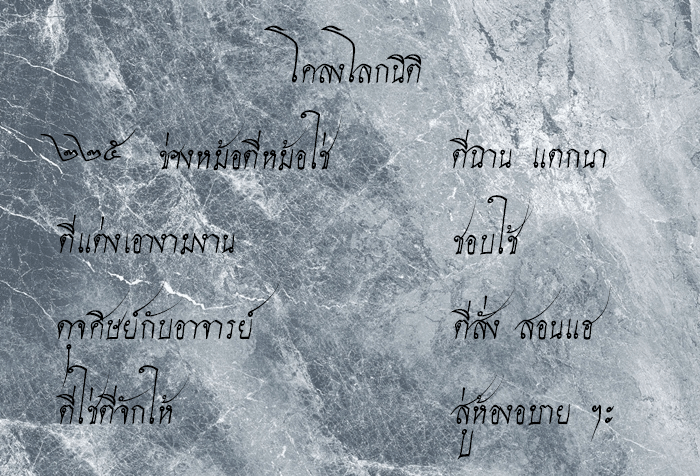 โคลงโลกนิติ
๒๒๕ ช่างหม้อตีหม้อใช่ ตีฉาน แตกนา
ตีแต่งเอางามงาน ชอบใช้
ดุจศิษย์กับอาจารย์ ตีสั่ง สอนแฮ
ตีใช่ตีจักให้ สู่ห้องอบาย ๆะ